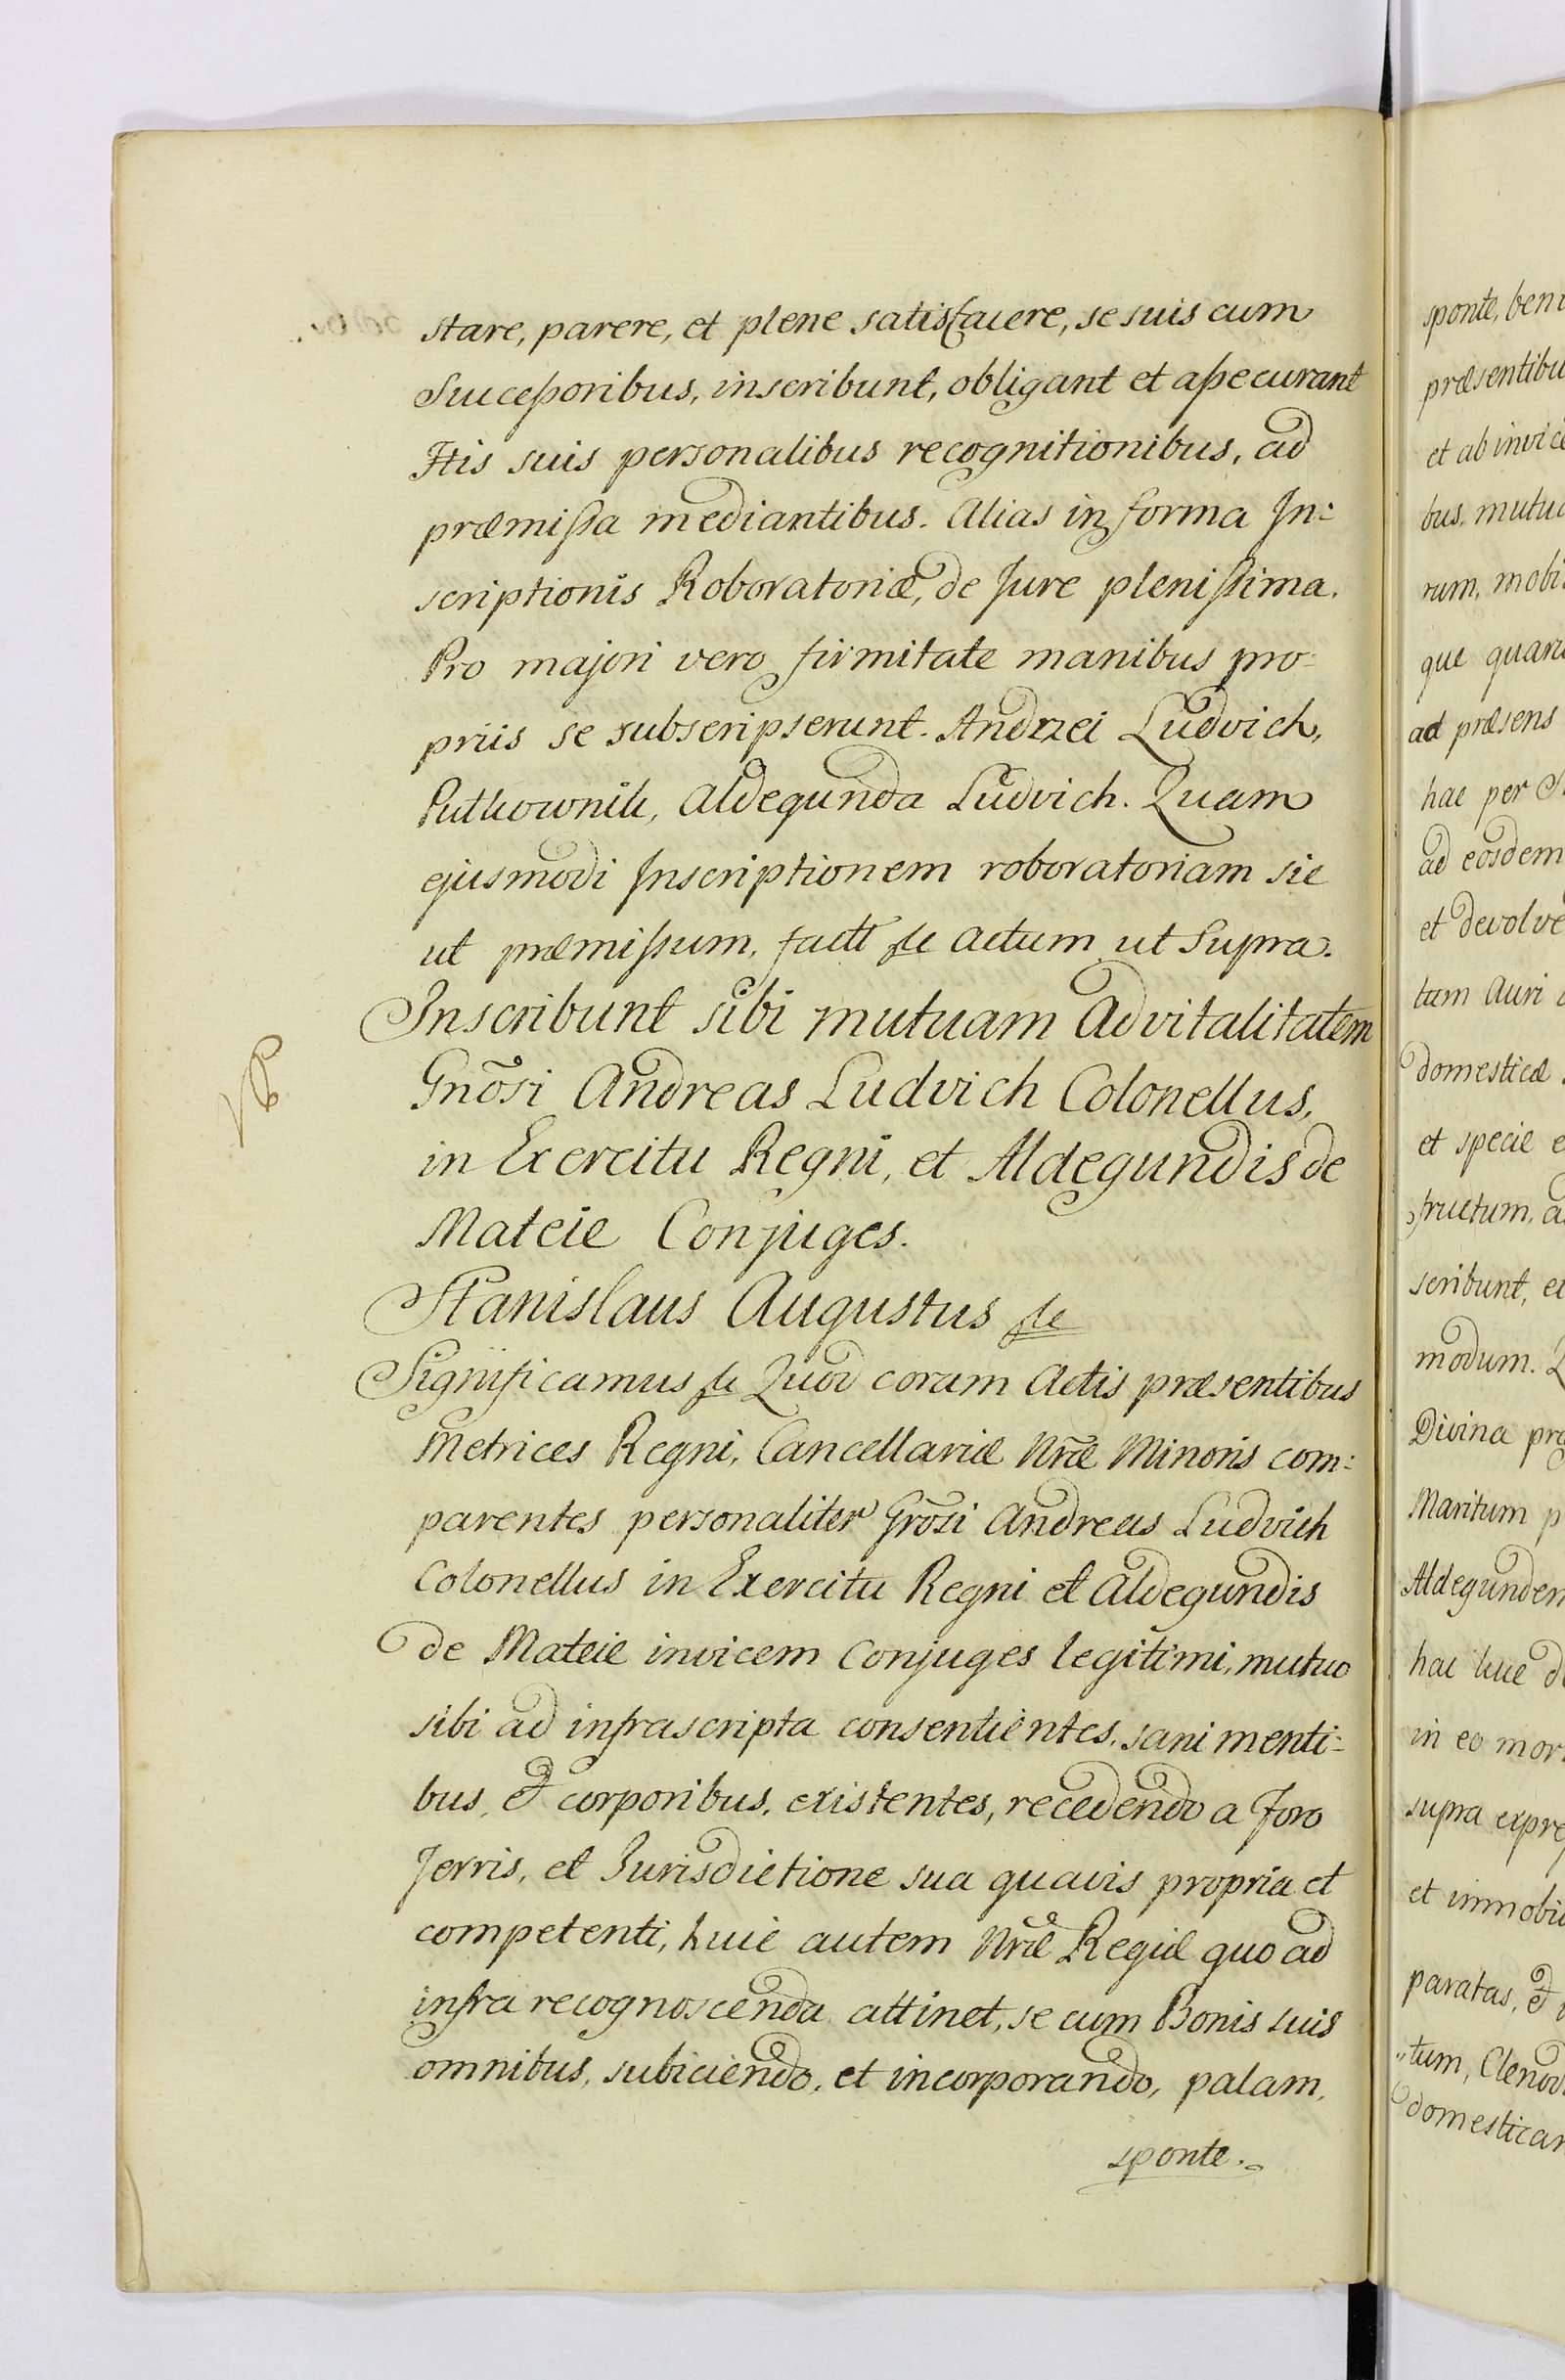 stare, parere, et plene satisfacere, se suis cum
Successoribus, inscribunt, obligant et assecurant
Htis suis personalibus recognitionibus, ad
præmissa mediantibus. Alias in forma In:
scriptionis Roboratoriæ, de Jure plenissima.
Pro majori vero firmitate manibus pro:
priis se subscripserunt. Andrzei Ludvich,
Pułkownik, Aldegunda Ludvich. Quam
ejusmodi Inscriptionem roboratoriam sic
ut præmissum, factt &c Actum ut Supra.
Inscribunt sibi mutuam Advitalitatem
Gnõsi Andreas Ludvich Colonellus,
in Exercitu Regni, et Aldegundis de
Mateie Conjuges.
Stanislaus Augustus &c
Significamus &c Quod coram Actis præsentibus
Metrices Regni, Cancellariæ Nræ Minoris com:
parentes personaliter Gnõsi Andreas Ludvich
Colonellus in Exercitu Regni et Aldegundis
de Mateie invicem Conjuges legitimi, mutuo
sibi ad infrascripta consentientes, sani menti:
bus, et corporibus, existentes, recedendo a foro
Terris, et Jurisdictione sua quavis propria et
competenti, huic autem Nræ Regiæ quo ad
infra recognoscenda attinet, se cum Bonis suis
omnibus, subiciendo, et incorporando, palam,
sponte.
sponte, bene
præsentibu
et ab invice
bus, mutua
rum, mobi
que quaru
ad præsens
hac per
ad eosdem
et devolve
tum Auri
domesticæ
et specie e
fructum, a
scribunt, et
modum. Q
Divina pro
Maritum p
Aldegundem
hac luce d
in eo mor
supra expre
et immobil
paratas, et
"tum, Clenod
domesticar